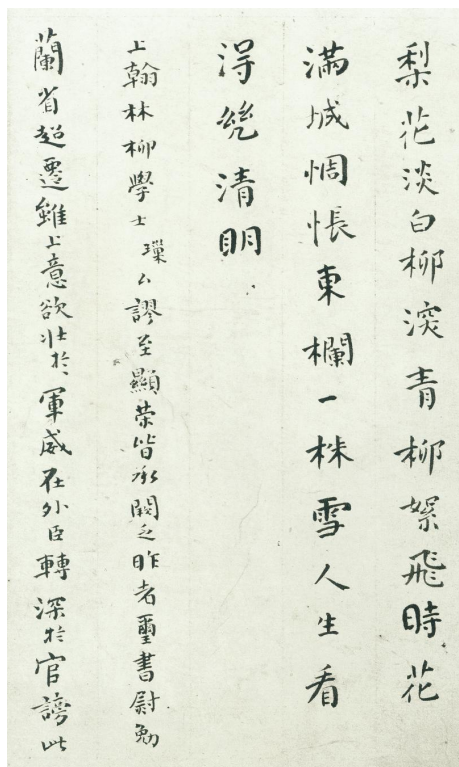 梨花淡白柳深青柳絮飛時花
滿城惆悵東欄一株雪人生看
得幾清明
上翰林柳學士 厶謬至顯榮皆承闕乏昨者璽書尉勉
蘭省超遷雖上意欲壯於軍威在外臣轉深於官謗此